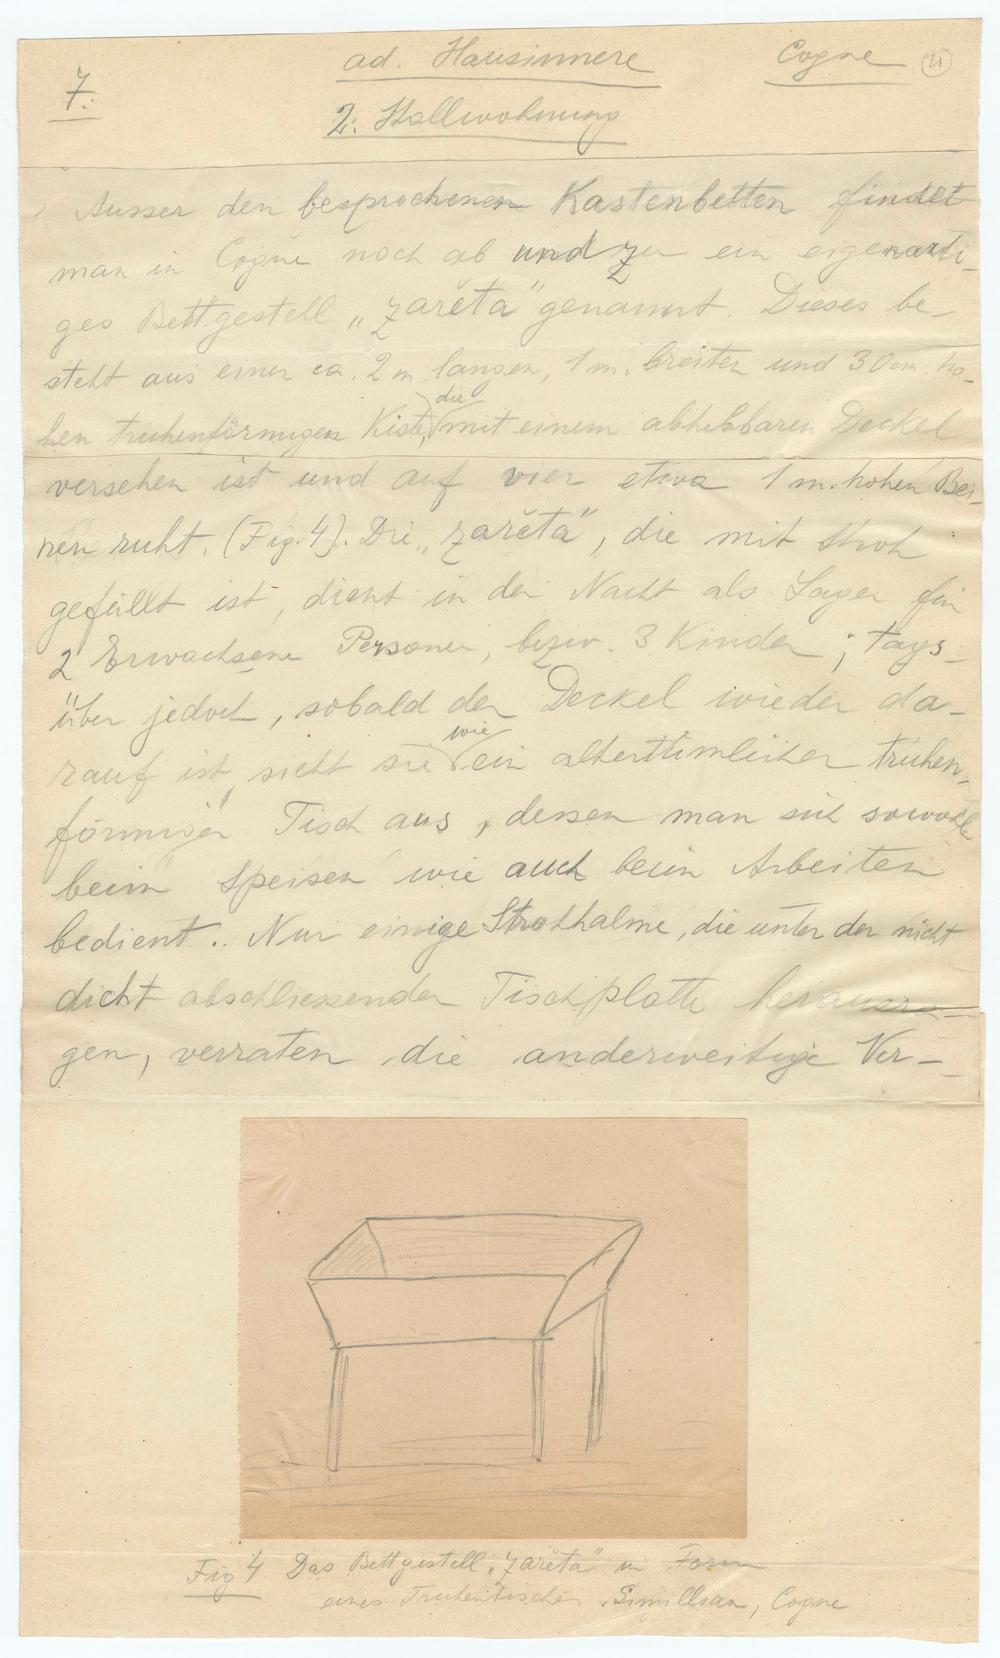 ad. Hausinnere Cogne 21
7. 2. Stallwohnung
Ausser den besprochenen Kastenbetten findet
man in Cogne noch ab und zu ein eigenarti-
ges Bettgestell „zarěta" genannt. Dieses be-
steht aus einer ca. 2 m. langen, 1 m. breiten und 30 cm. ho-
hen truhenförmigen Kiste, die mit einem abhebbaren Deckel
versehen ist und auf vier etwa 1 m. hohen Bei-
nen ruht. (Fig. 4). Die „zarěta", die mit Stroh
gefüllt ist, dient in der Nacht als Lager für
2 Erwachsene Personen, bezw. 3 Kinder; tags-
über jedoch, sobald der Deckel wieder da-
rauf ist, sieht sie wie ein altertümlicher truhen-
förmiger Tisch aus, dessen man sich sowohl
beim Speisen wie auch beim Arbeiten
bedient. Nur einige Strohhalme, die unter der nicht
dicht abschliessenden Tischplatte herausra-
gen, verraten die anderweitige Ver-
Fig 4 Das Bettgestell „zarěta" in Form
eines Truhentisches. Gimillian, Cogne